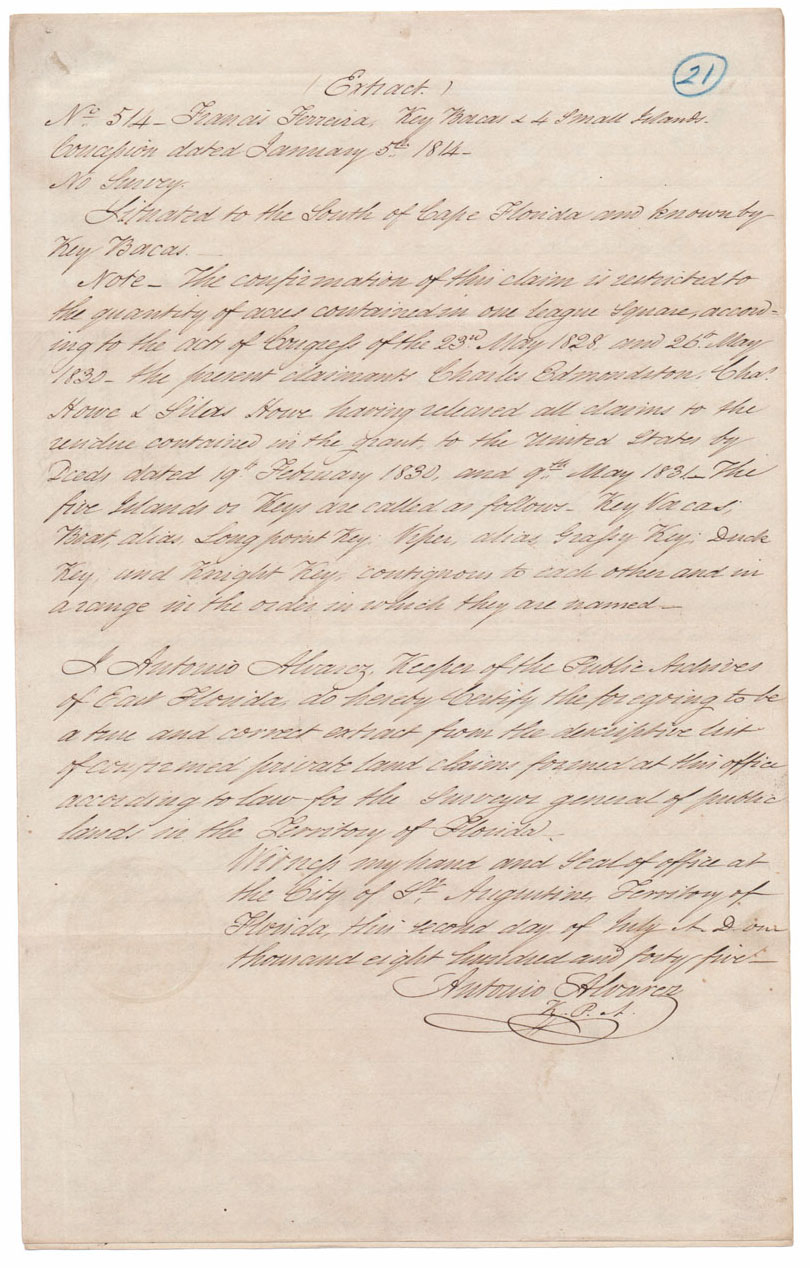 21
(Extract.)
No 514 - Francis Ferreira, Key Bacas & 4 Small Islands.
Concession dated January 5th 1814 -
No Survey.
Situated to the South of Cape Florida and known by
Key Bacas.
Note - The confirmation of this claim is restricted to
the quantity of acres contained in one league square, accord-
ing to the acts of Congress of the 23rd May 1828, and 26th May
1830 - the present claimants Charles Edmondston, Chas.
Howe & Silas Howe having released all claims to the
residue contained in the grant, to the United States by
Deeds dated 19th February 1830, and 9th May 1831 - The
five Islands or Keys are called as follows - Key Vacas;
alias, Long point Key; alias, Grassy Key; Duck
Key; and Knight Key; contiguous to each other and in
a range in the order in which they are named -
I Antonio Alvarez, Keeper of the Public Archives
of East Florida, do hereby Certify the foregoing to be
a true and correct extract from the descriptive list
of confirmed private land claims formed at this office
according to law for the Surveyor general of public
lands in the Territory of Florida.
Witness my hand and Seal of office at
the City of St. Augustine, Territory of
Florida, this second day of July A D one
thousand eight hundred and forty five -
Antonio Alvarez
K. P. A.